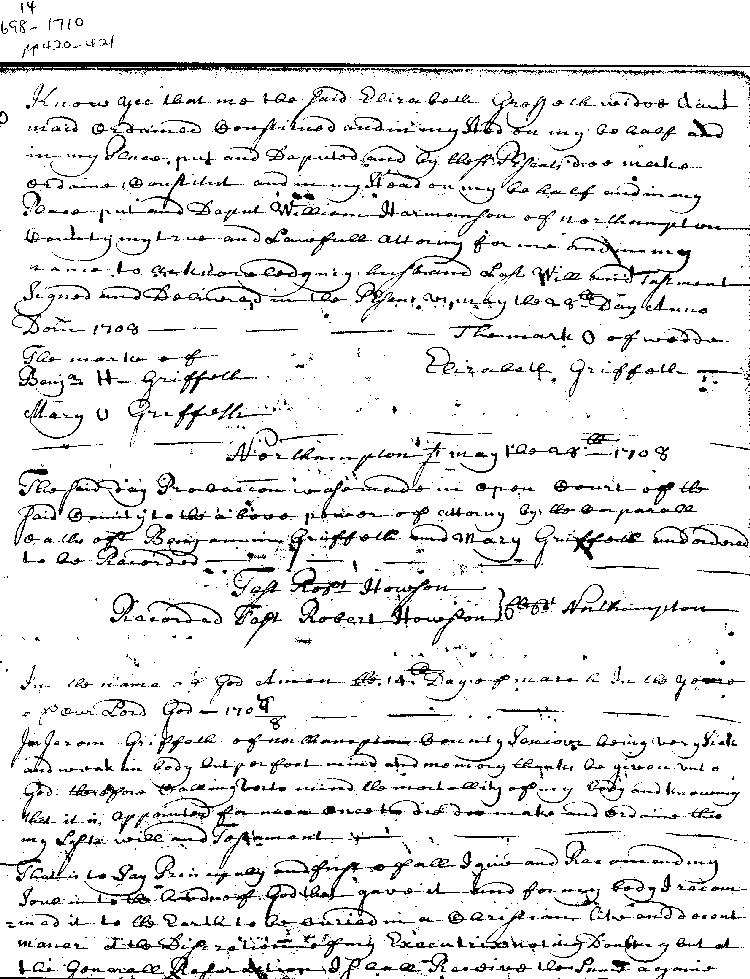 14
698-1710
pp 420-421
Know yee that me the said Elizabeth Griffeth widdo haue
maid ordained Constituted and in my stead on my behalf and
in my Place, put and Deputed and by these Psents doe make
ordaine Constitut and in my stead on my behalf and in my
Place put and Deput William Harmanson of Northampton
County my true and Lawfull attorny for me and in my
name to acknowledg my husband Last Will and Testment
Signed and Delivered in the Psent may the 28th Day Anno
Dom 1708 The mark O of
The marke of Elizabeth Griffeth
Benja H Griffeth
Mary O Griffeth
Northampton may the 28th 1708
The said day Probation was made in open Court of the
said County to the above power of attorny by the
oathe of Benjamin Griffeth and Mary Griffeth and ordered
to be Recorded
Test Robt Howson
Recorded Test Robert Howson Northampton
In the name of God Amen the 14th Day of march In the yeare
of our Lord God 170
8
Jerom Griffeth of northampton County being very sick
and weak in body but perfect mind and memory thanks be given unto
God therefore Calling unto mind the mortallity of my body and knowing
that it is appointed for men once to die doe make and ordaine this
my Laste will and Testament
That is to Say Principally and first of all I give and Recomending
Soul into the hands of God that gave it and for my body I recom
=mend it to the Earth to be buried in a Christian like and decent
maner at the Discration of my Executr noting Doubting but at
the Generall Resurection I shall Receive the same againe